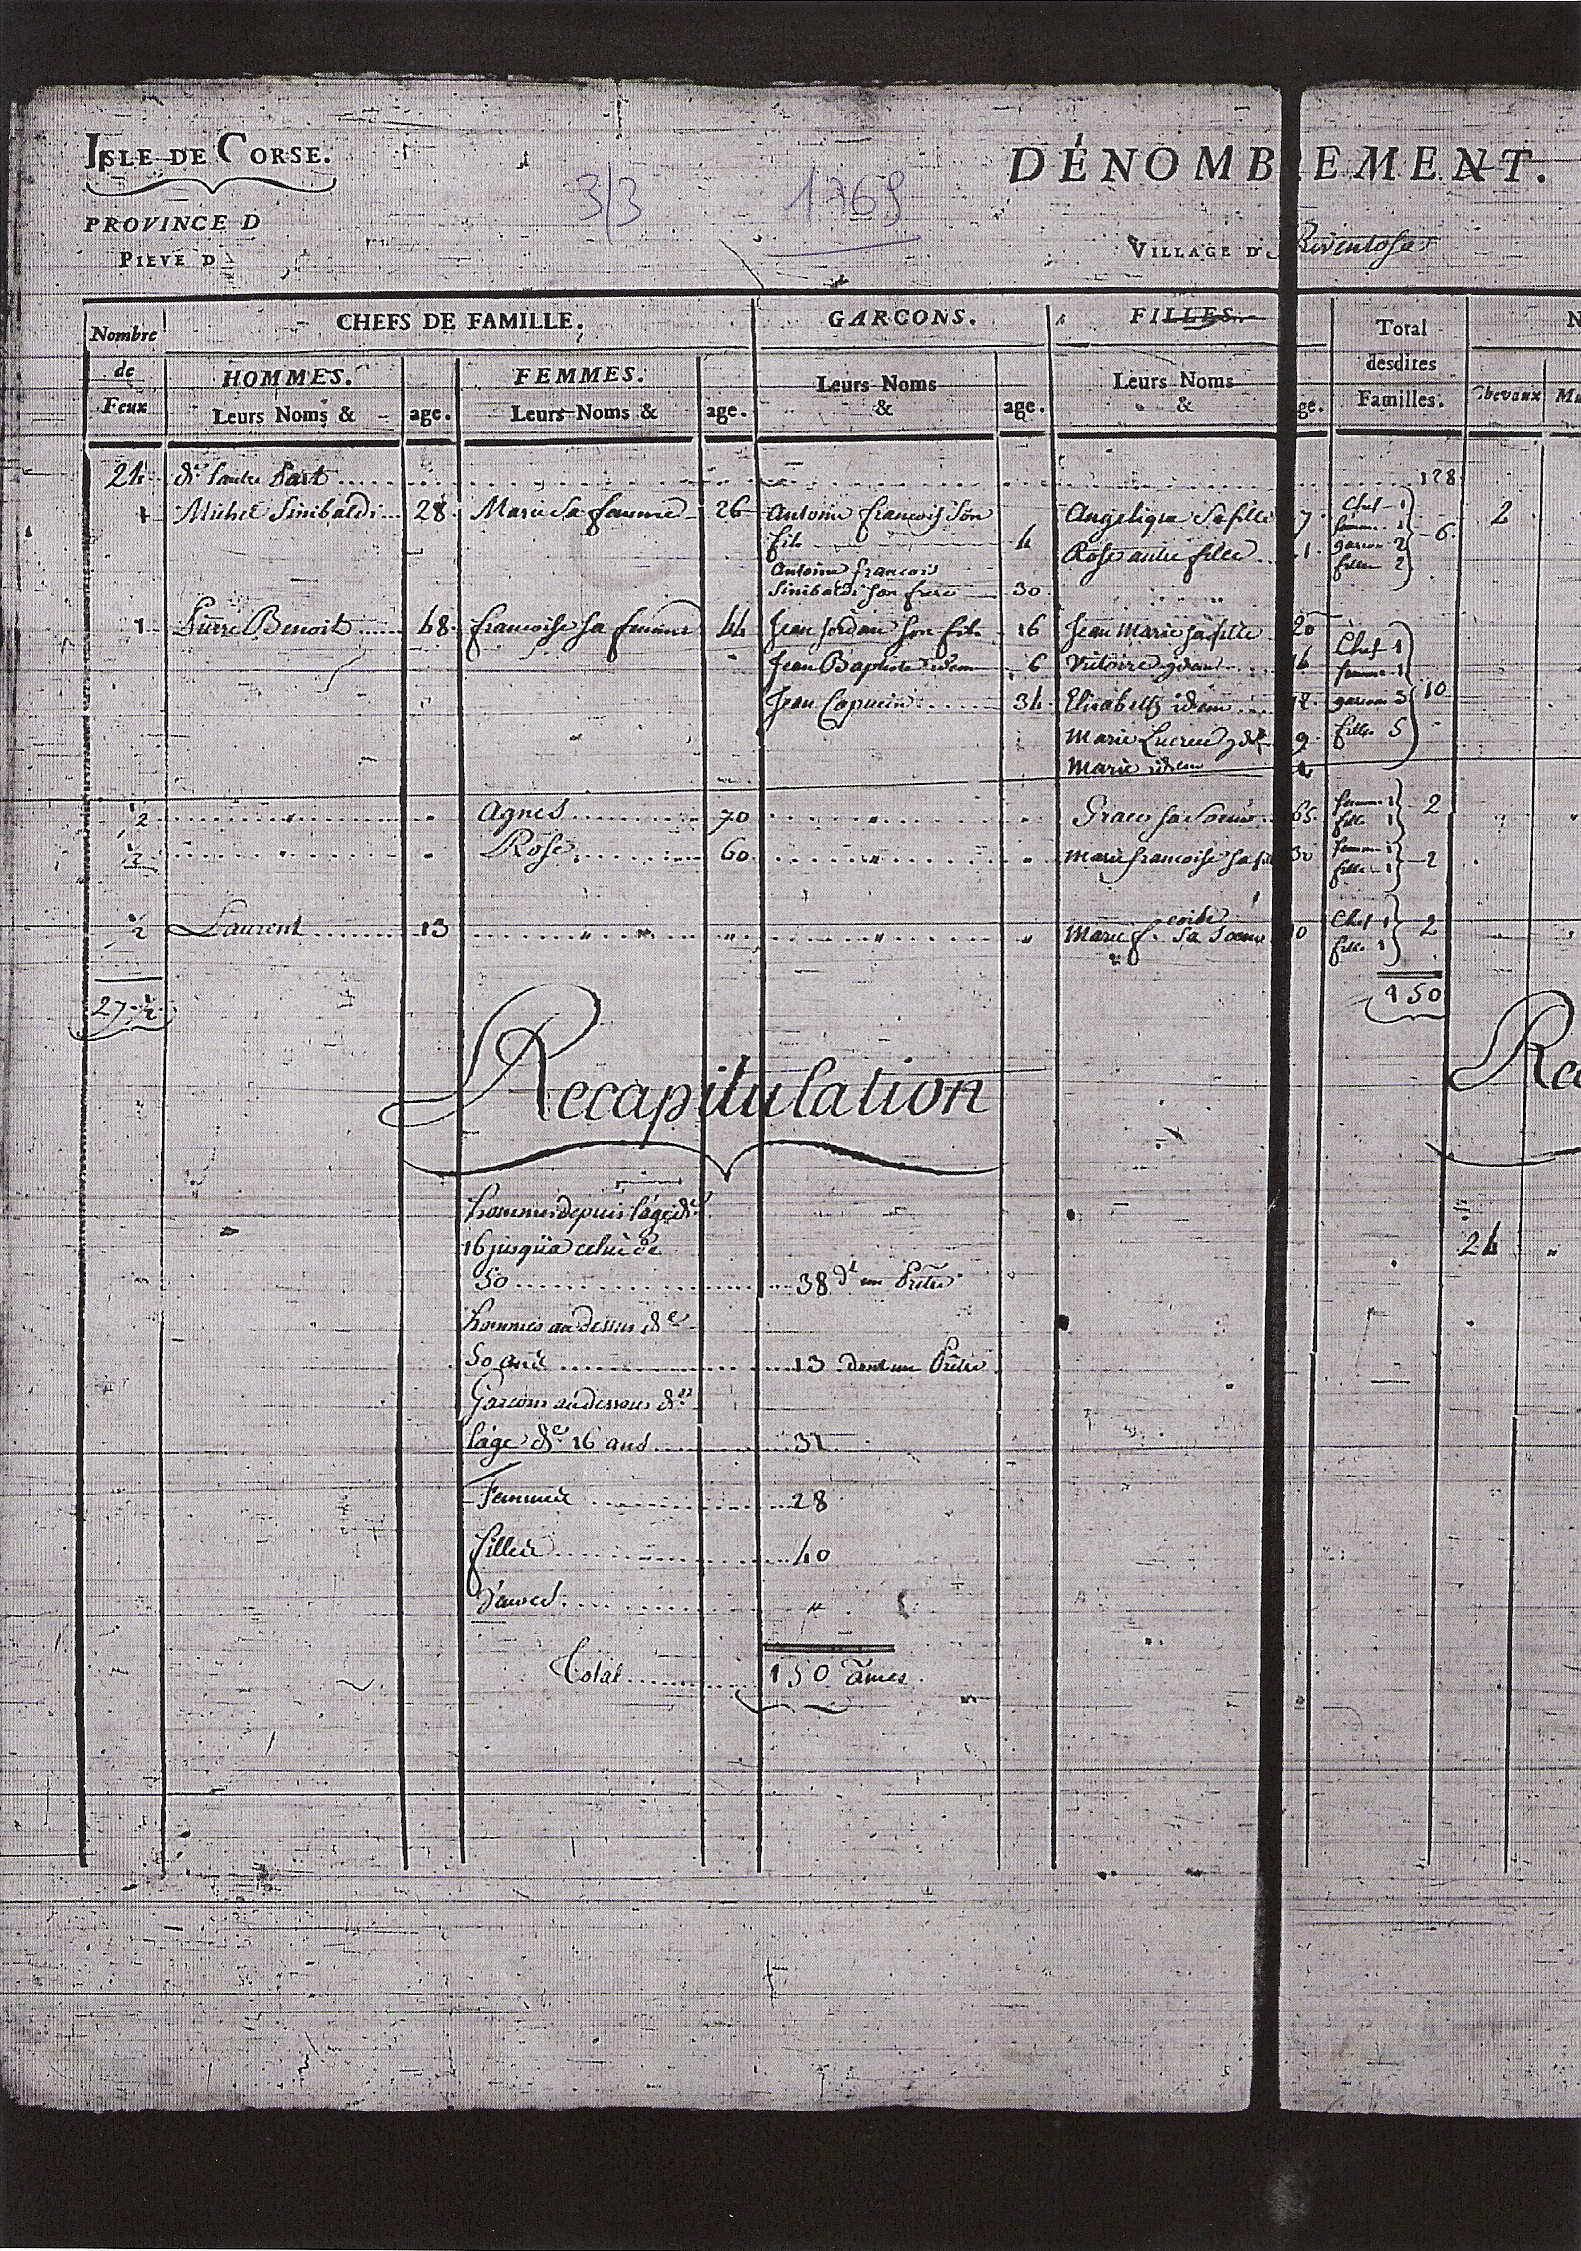 ISLE DE CORSE.
3/3 1769
DÉNOMBREMENT.
PROVINCE D
PIEVE D
VILLAGE D Riventosa
Nombre de Feux
CHEFS DE FAMILLE.
GARCONS.
FILLES.
Total desdites Familles.
HOMMES. Leurs Noms & age.
FEMMES. Leurs Noms & age.
Leurs Noms & age.
Leurs Noms & ge.
Chevaux
24 de l'autre Part 128
1 Michel Sinibaldi 28 Marie sa femme 26 Antoine françois son fils 4 Angelique sa fille 7 Chef 1 femme 1 garcon 2 filles 2 6 2
Rose autre fille 1
Antoine francois
Sinibaldi son frere 30
1 Pierre Benoit 48 francoise sa femme 44 Jean Jordan son fils 16 Jean Marie sa fille 20 Chef 1
Jean Baptiste idem 6 Victoire idem femme 1
Jean Capucin 34 Elisabeth idem garcons 3 10
Marie Lucrece 9 filles 5
Marie idem
1/2 Agnes 70 Grace sa soeur 65 femme 1 fille 1 2
1/2 Rose 60 Marie francoise sa 30 femme 1 fille 1 2
1/2 Laurent 13 Marie f. sa soeur 10 Chef 1 fille 1 2
27 1/2
150
Recapitulation
Rec
hommes depuis l'age de
16 jusqu'a celui de
50 38 dt un Prêtre
24
hommes au dessus de
50 ans 13 dont un Prêtre
Garcons au dessous de
l'age de 16 ans 31
Femmes 28
filles 40
Total 150 âmes